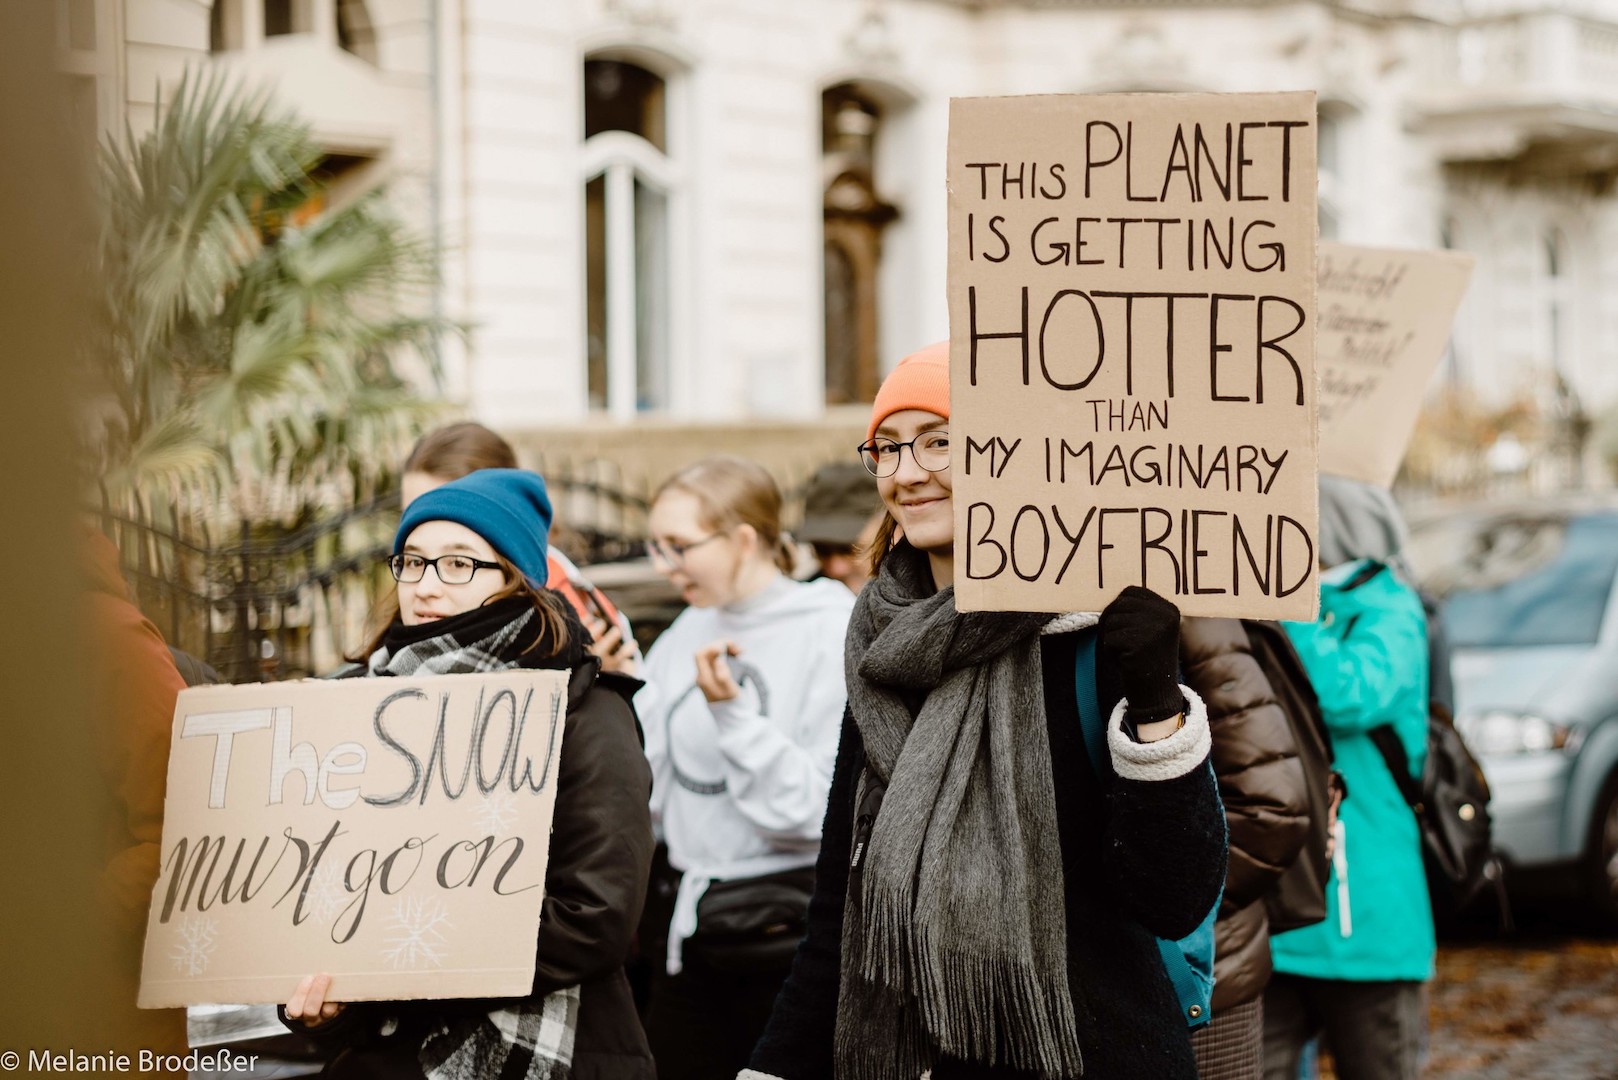 THIS PLANET
IS GETTING
HOTTER
THAN
MY IMAGINARY
BOYFRIEND
The SNOW
must go on
© Melanie Brodeßer